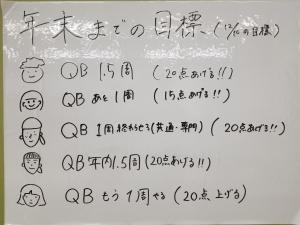 年末までの目標 (12/10の目標)
QB 1.5周 (20点あげる!!)
QB あと1周 (15点あげる!!)
QB 1周終わらせる(共通・専門) (20点あげる!!)
QB 年内1.5周(20点あげる!!)
QB もう1周やる(20点上げる)